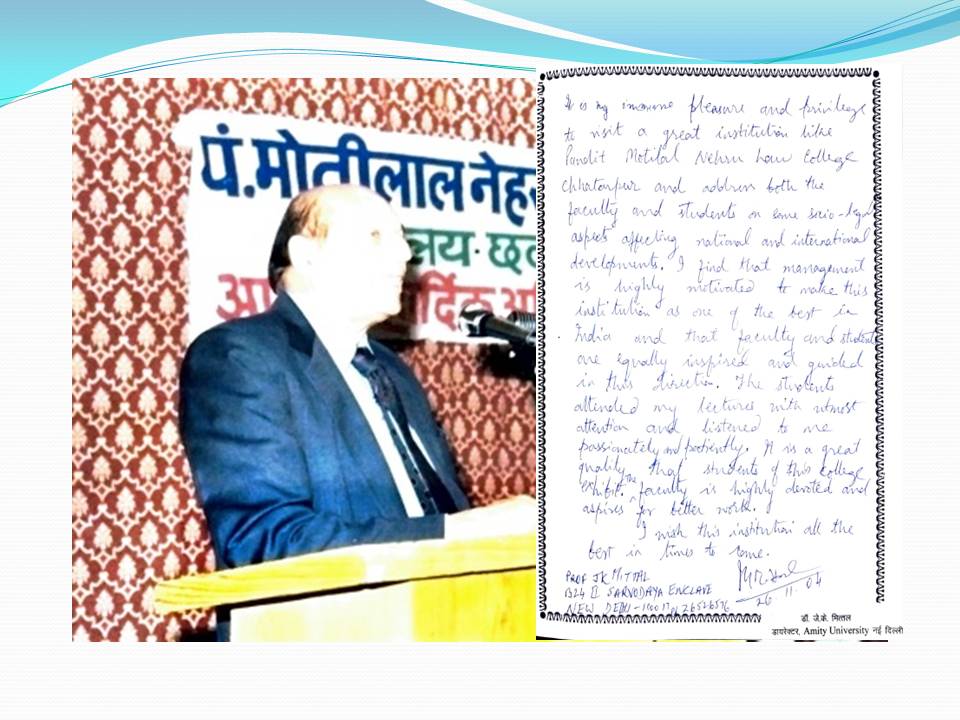 पं.मोतीलाल नेहरू
लय-छत
It is my immense pleasure and privilege
to visit a great institution like
Pandit Motilal Nehru Law College
Chhatarpur and address both the
faculty and students on some socio-legal
aspects affecting national and international
developments. I find that management
is highly motivated to make this
institution as one of the best in
India and that faculty and students
are equally inspired and guided
in this direction. The students
attended my lectures with utmost
attention and listened to me
passionately and patiently. It is a great
quality that students of this college
exhibit. The faculty is highly devoted and
aspires for better work.
I wish this institution all the
best in times to come.
PROF JK MITTAL
B24 II SARVODAYA ENCLAVE
NEW DELHI-110017 26526576
26.11.04
डॉ. जे.के. मित्तल
डायरेक्टर, Amity University नई दिल्ली